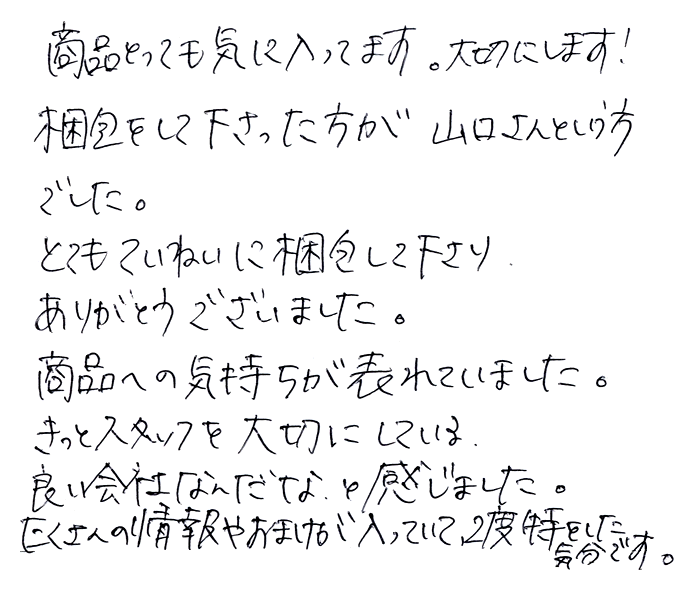 商品とっても気に入ってます。大切にします!
梱包をして下さった方が 山口さんという方
でした。
とてもていねいに梱包して下さり、
ありがとうございました。
商品への気持ちが表れていました。
きっとスタッフを大切にしている、
良い会社なんだな、と感じました。
たくさんの情報やおまけが入っていて、2度得をした
気分です。